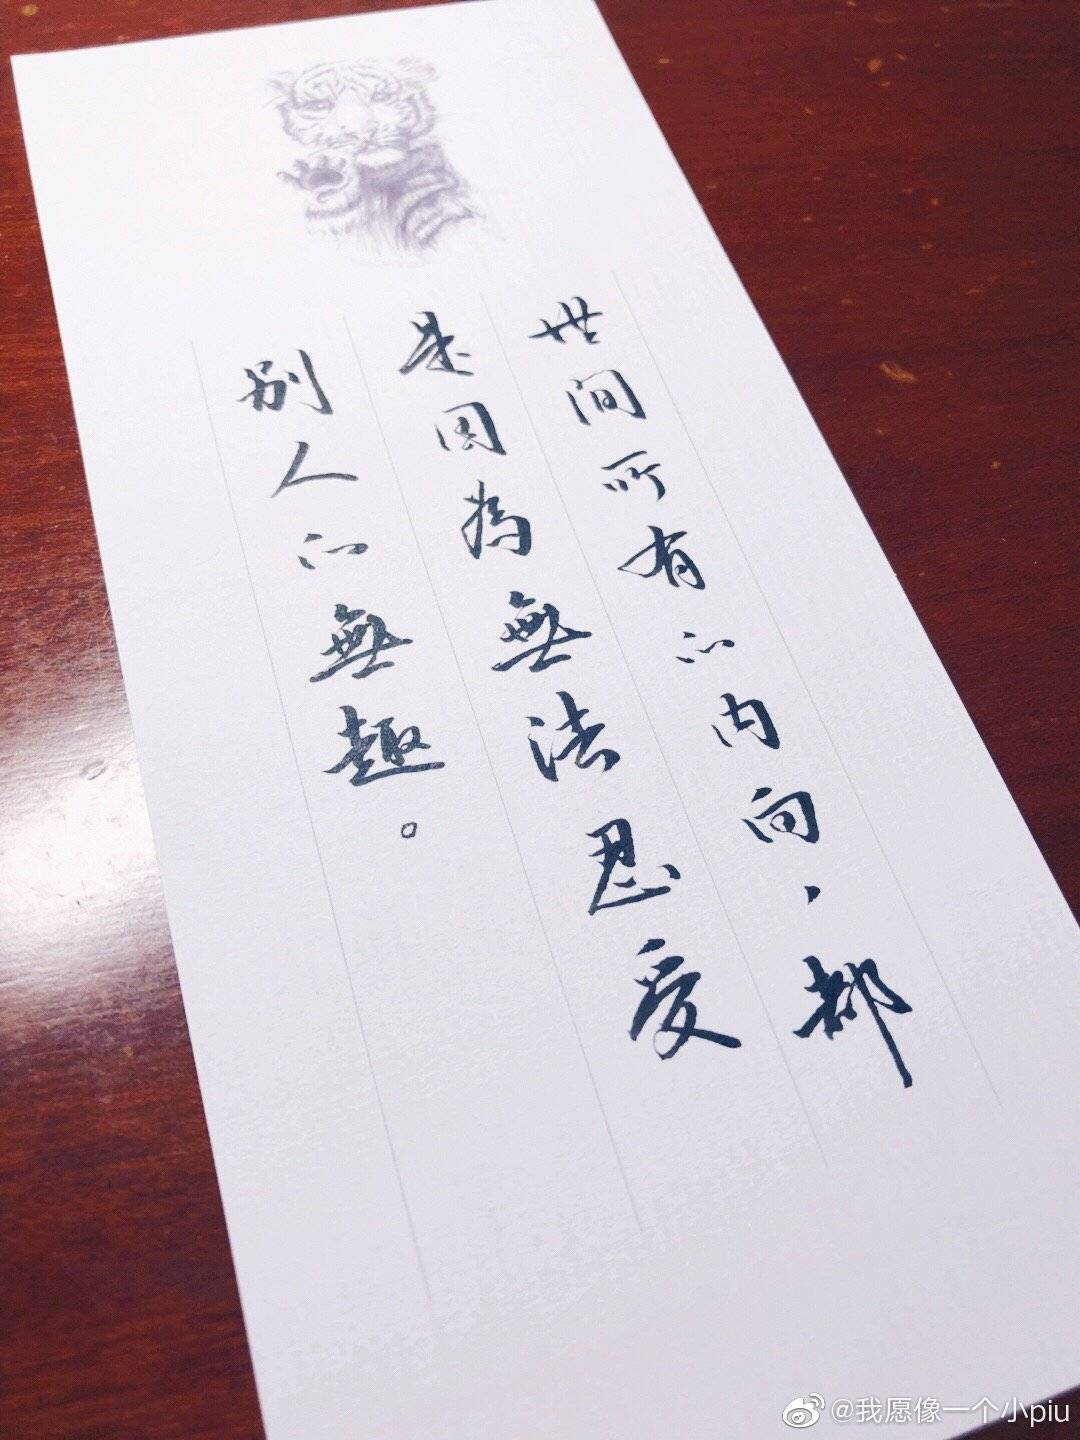 世间所有的内向，都
是因為無法忍受
别人的無趣。
@我愿像一个小piu